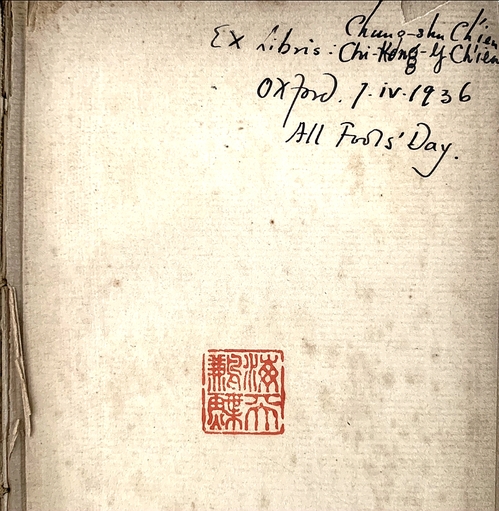 Chung-shu Ch'ien
Ex Libris: Chi-Kang-Y Ch'ien
Oxford. 1·iv·1936
All Fools' Day.
海天
鶼鰈